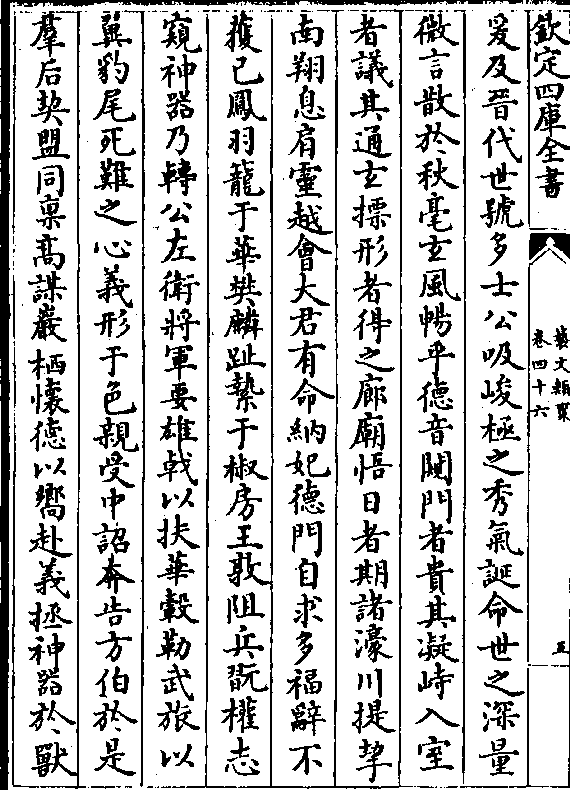 欽定四庫全書
藝文類聚
卷四十六
五
爰及晉代世號多士公吸峻極之秀氣誕命世之深量
微言散於秋毫玄風暢乎德音闚門者貴其凝峙入室
者議其通玄摽形者得之廊廟悟日者期諸濠川提挈
南翔息肩靈越會大君有命納妃德門自求多福辭不
獲已鳳羽籠于華樊麟趾縶于椒房王敦阻兵翫權志
窺神器乃轉公左衛將軍要雄戟以扶華轂勒武旅以
翼豹尾死難之心義形于色親受中詔奔告方伯於是
羣后契盟同稟高謀巖栖懷德以嚮赴義拯神器於獸